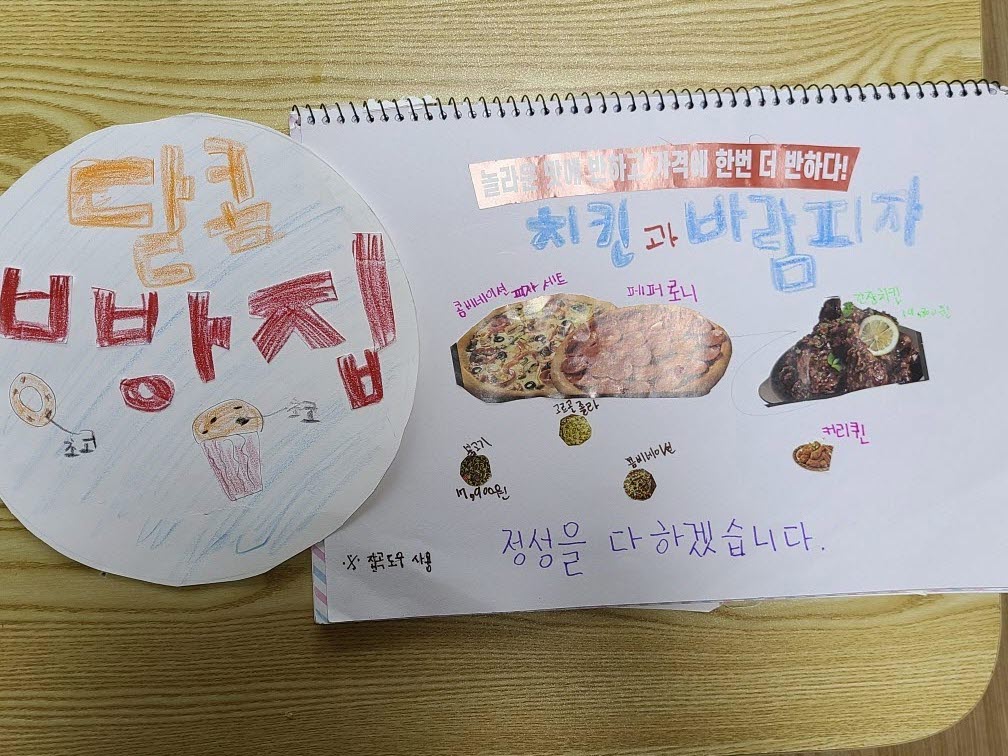 달콤
빵방집
초코
놀라운 맛에 반하고 가격에 한번 더 반하다!
치킨과 바람피자
콤비네이션 피자 세트
페퍼로니
간장치킨
고르곤졸라
불고기
17,900원
콤비네이션
커리퀸
정성을 다 하겠습니다.
※ 잡곡도우 사용